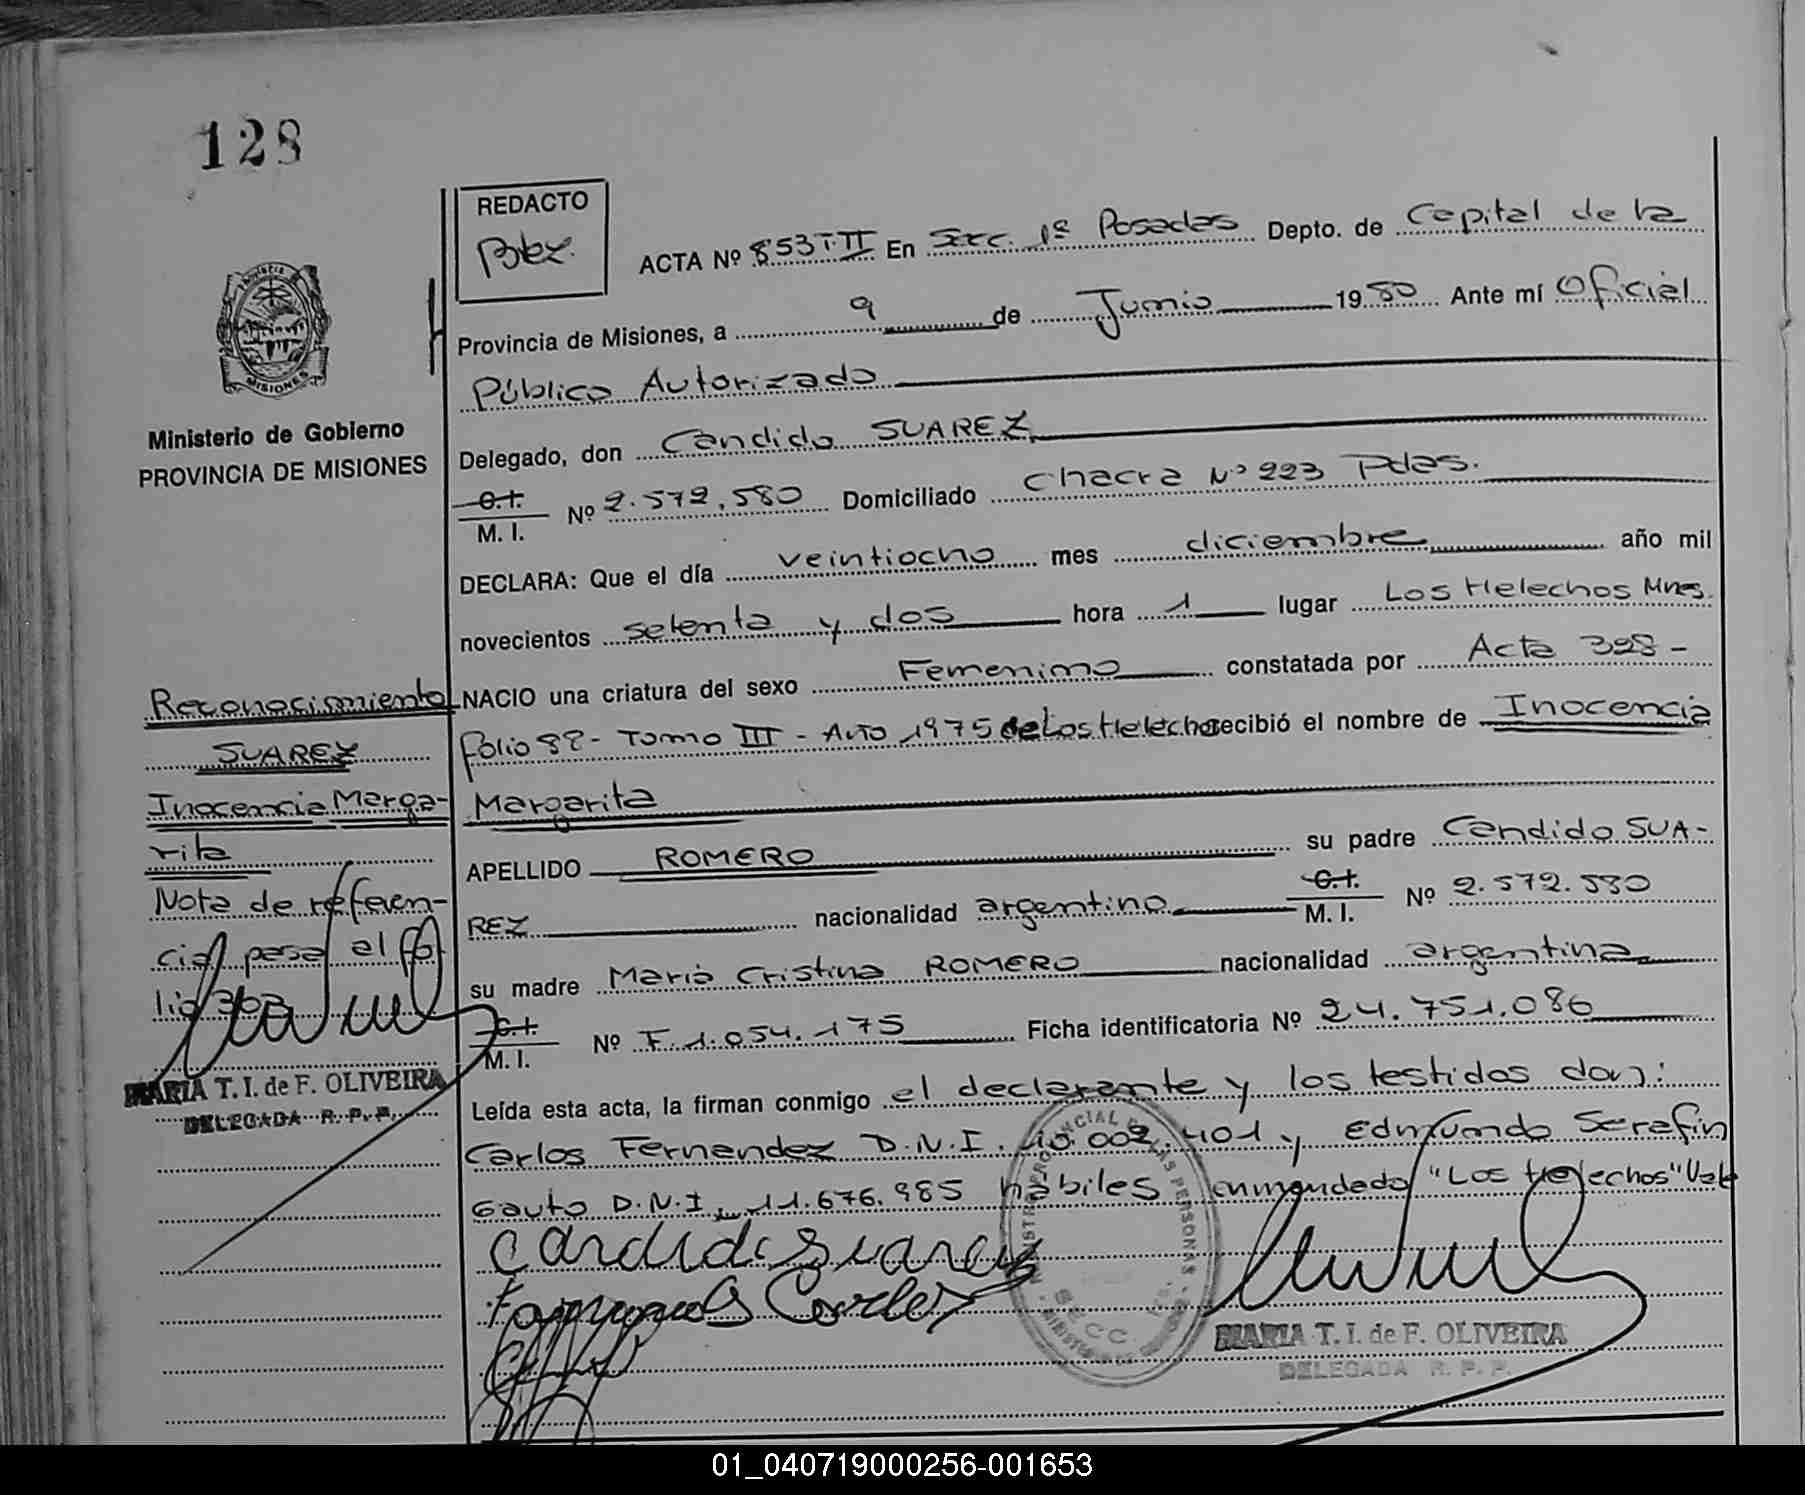 128
REDACTO
ACTA Nº 853 T·II En Sec. 1ª Posadas Depto. de Capital de la
Provincia de Misiones, a 9 de Junio 1980 Ante mí Oficial
Público Autorizado
MISIONES
Ministerio de Gobierno
PROVINCIA DE MISIONES
Delegado, don Candido SUAREZ
C.I.
M. I. Nº 2.572.580 Domiciliado Chacra Nº 223 Pdas.
DECLARA: Que el día veintiocho mes diciembre año mil
novecientos setenta y dos hora 1 lugar Los Helechos Mnes.
NACIO una criatura del sexo Femenino constatada por Acta 398 -
folio 98 - Tomo III - Año 1975 de Los Helechos recibió el nombre de Inocencia
Margarita
APELLIDO ROMERO su padre Candido SUA-
REZ nacionalidad argentino C.I.
M. I. Nº 2.572.580
su madre Maria Cristina ROMERO nacionalidad argentina
C.I.
M. I. Nº F.1.054.175 Ficha identificatoria Nº 24.751.086
Leída esta acta, la firman conmigo el declarante y los testidos don:
Carlos Fernandez D.N.I. 10.002.401 y Edmundo Serafin
Gauto D.N.I. 11.676.985 habiles enmendado "Los Helechos" Vale
Reconocimiento
SUAREZ
Inocencia Marga-
rita
Nota de referen-
cia pasa al fo-
lio 363
MARIA T. I. de F. OLIVEIRA
DELEGADA R. P. P.
Candido Suarez
MARIA T. I. de F. OLIVEIRA
DELEGADA R. P. P.
01_040719000256-001653